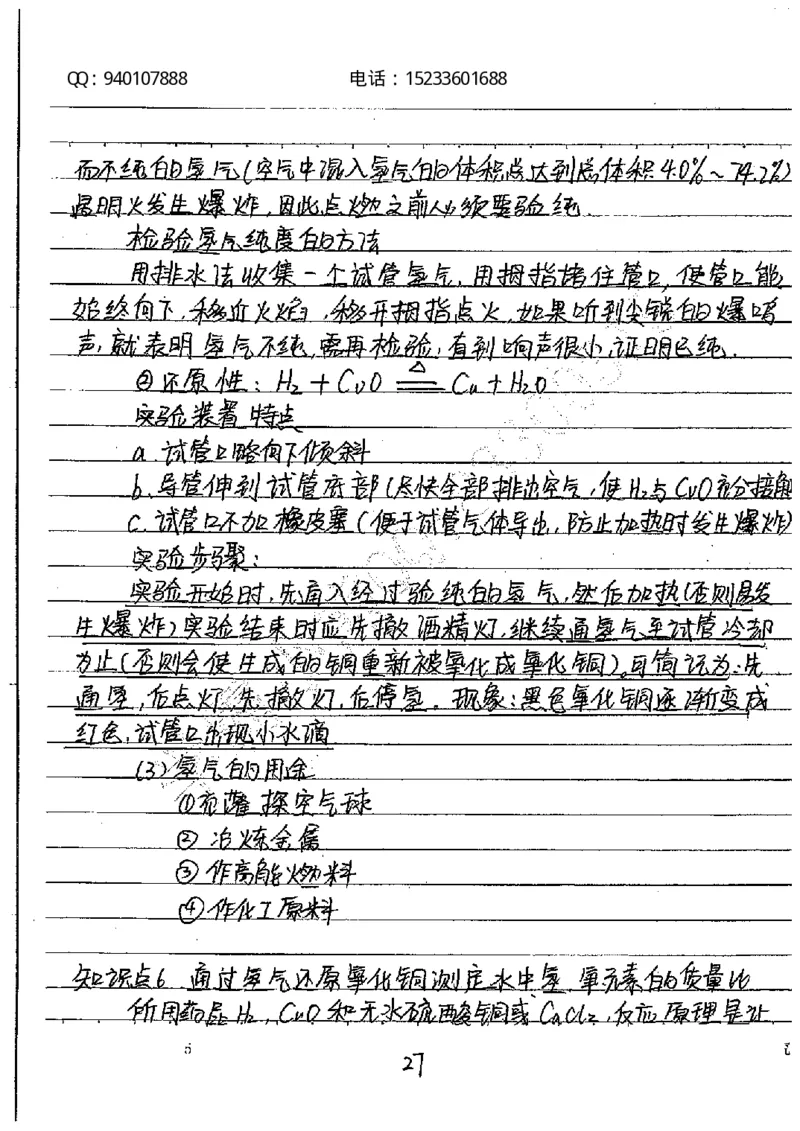 QQ：940107888 电话：15233601688
而不纯的氢气(空气中混入氢气的体积点达到总体积4.0%～74.2%)
遇明火发生爆炸,因此点燃之前必须要验纯.
检验氢气纯度的方法
用排水法收集一个试管氢气,用拇指堵住管口,使管口能
始终向下,移近火焰,移开拇指点火,如果听到尖锐的爆鸣
声,就表明氢气不纯,需再检验,直到响声很小,证明已纯.
②还原性：H₂+CuO =△= Cu+H₂O
实验装置特点
a.试管口略向下倾斜
b.导管伸到试管底部(尽快全部排出空气,使H₂与CuO充分接触
c.试管口不加橡皮塞(便于试管气体导出,防止加热时发生爆炸)
实验步骤：
实验开始时,先通入经过验纯的氢气,然后加热(否则易发
生爆炸)实验结束时应先撤酒精灯,继续通氢气至试管冷却
为止(否则会使生成的铜重新被氧化成氧化铜)。可简记为:先
通氢,后点灯,先撤灯,后停氢。现象:黑色氧化铜逐渐变成
红色,试管口出现小水滴
(3)氢气的用途
①充灌探空气球
②冶炼金属
③作高能燃料
④作化工原料
知识点6 通过氢气还原氧化铜测定水中氢、氧元素的质量比
所用药品H₂,CuO和无水硫酸铜或CaCl₂,反应原理是让
27